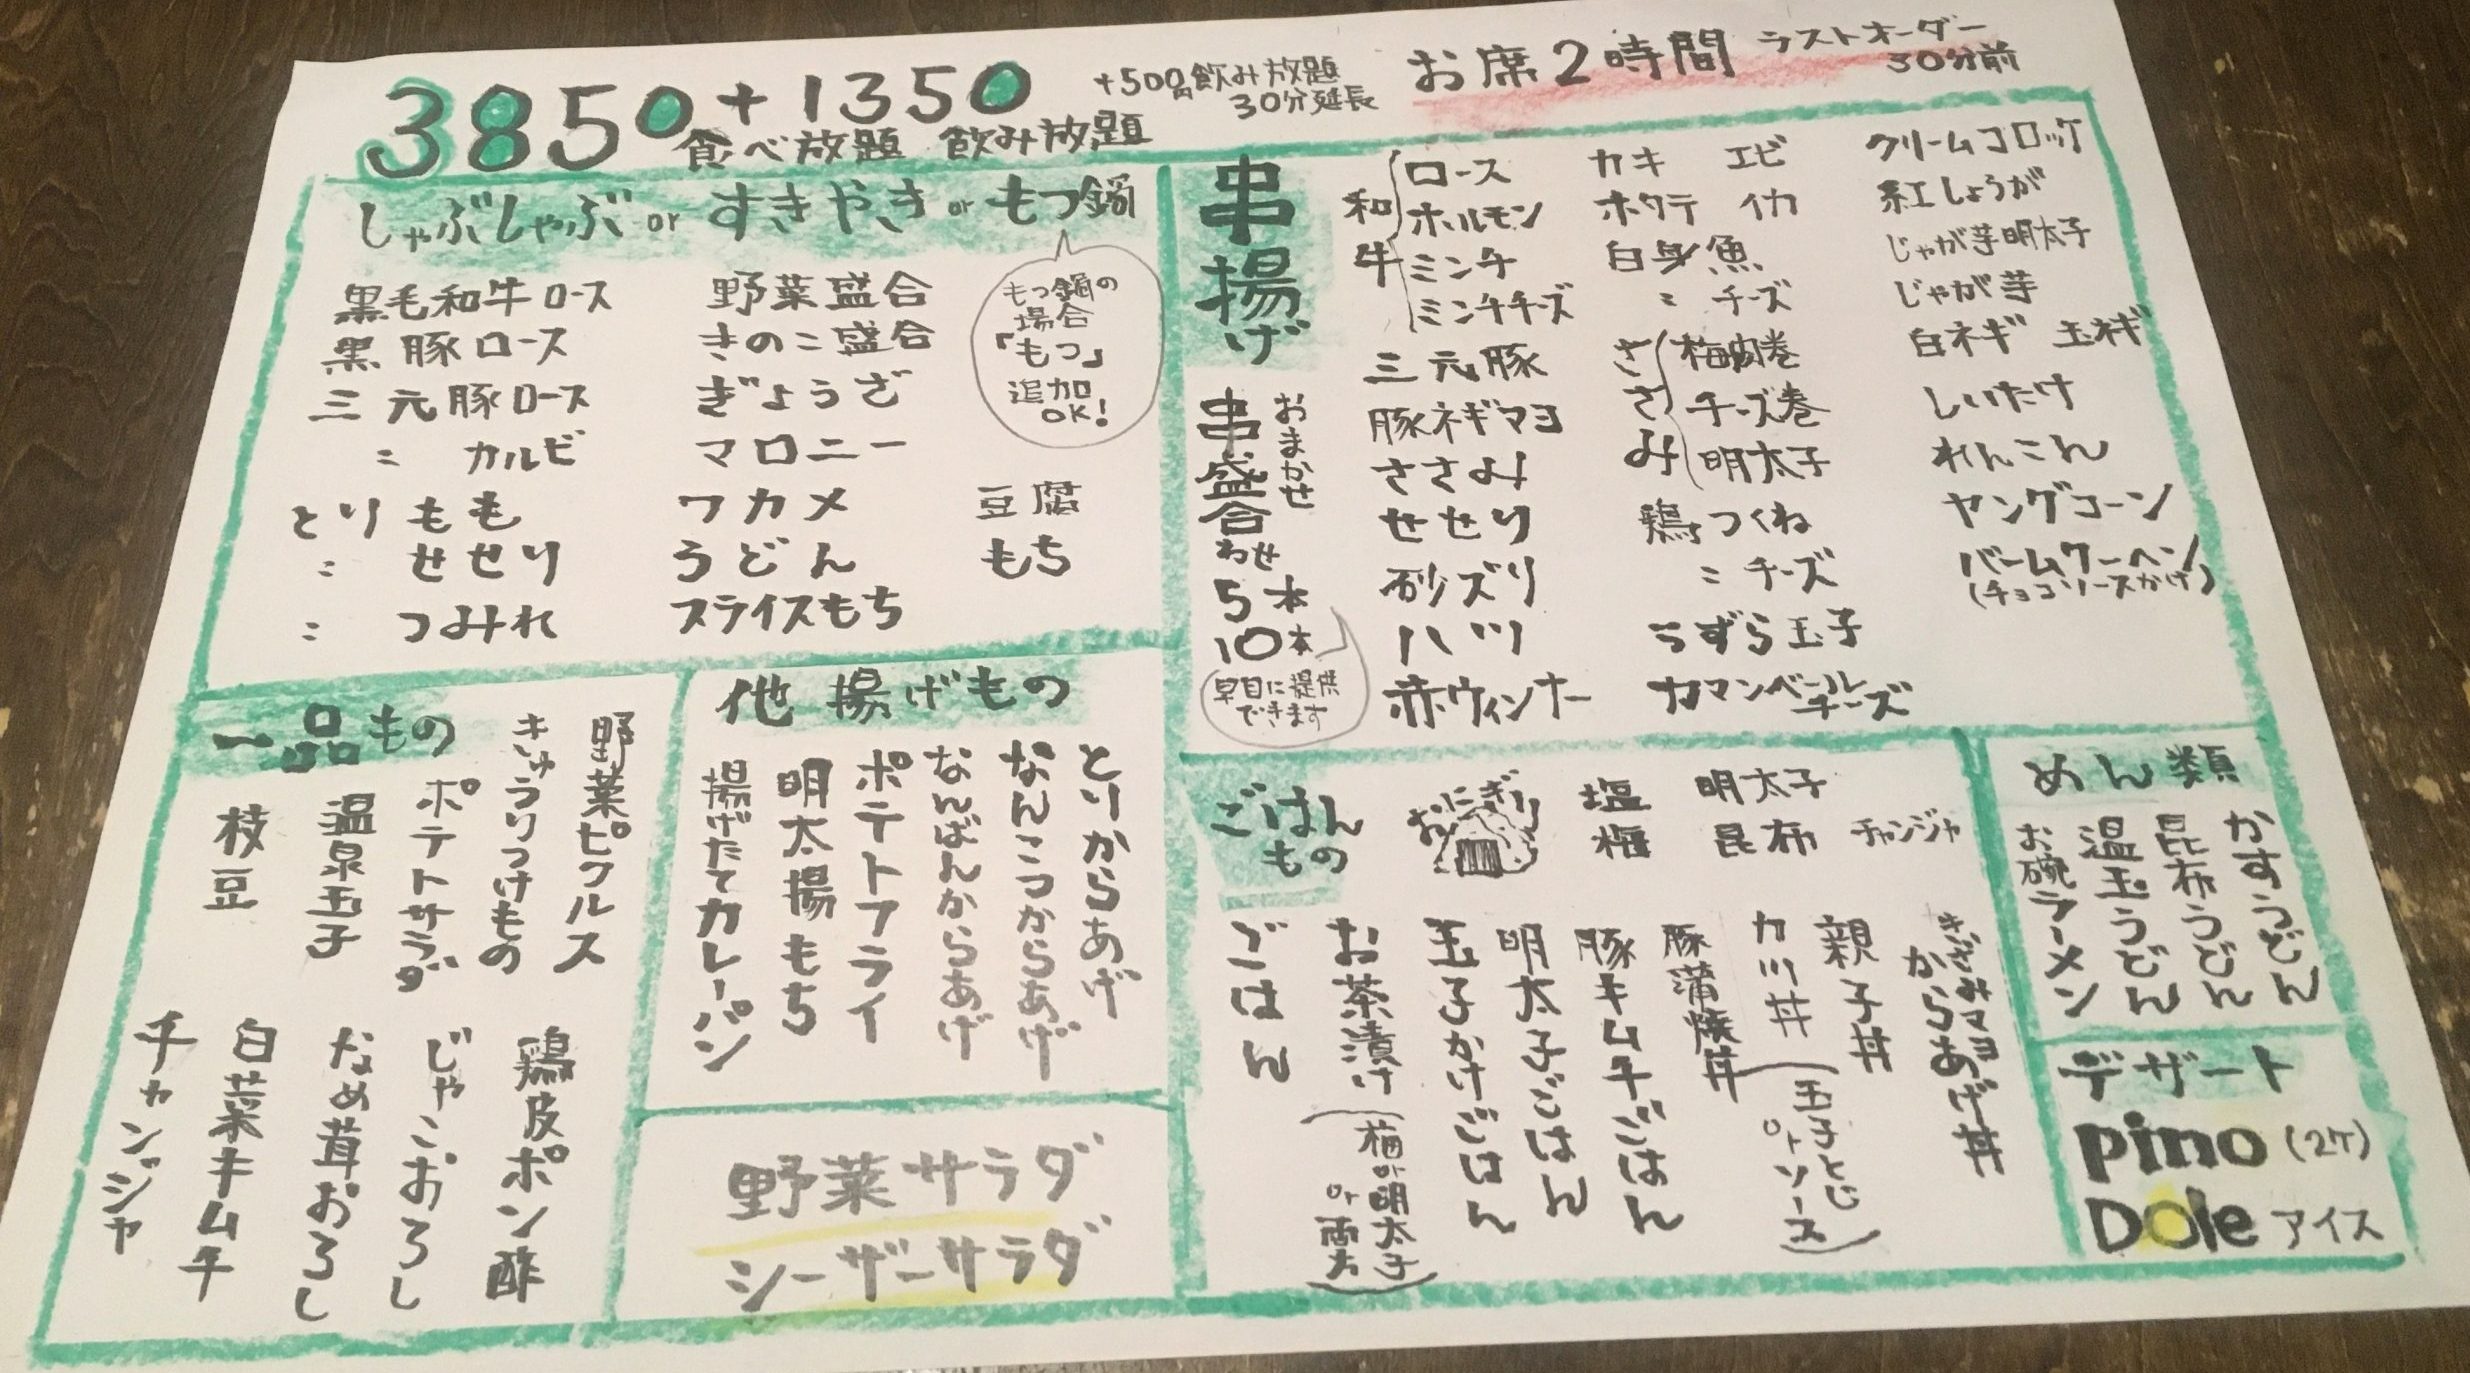 3850+1350
食べ放題 飲み放題
+500円飲み放題
30分延長
お席2時間
ラストオーダー
30分前
しゃぶしゃぶ or すきやき or もつ鍋
黒毛和牛ロース
黒豚ロース
三元豚ロース
〃 カルビ
とりもも
〃 せせり
〃 つみれ
野菜盛合
きのこ盛合
ぎょうざ
マロニー
ワカメ
うどん
スライスもち
豆腐
もち
もつ鍋の
場合
「もつ」
追加
OK!
串揚げ
おまかせ
串盛合わせ
5本
10本
早目に提供
できます
和牛
ロース
ホルモン
ミンチ
ミンチチーズ
三元豚
豚ネギマヨ
ささみ
せせり
砂ズリ
ハツ
赤ウィンナー
カキ エビ
ホタテ イカ
白身魚
〃 チーズ
ささみ
梅肉巻
チーズ巻
明太子
鶏つくね
〃 チーズ
うずら玉子
カマンベール
チーズ
クリームコロッケ
紅しょうが
じゃが芋明太子
じゃが芋
白ネギ 玉ネギ
しいたけ
れんこん
ヤングコーン
バームクーヘン
(チョコソースかけ)
一品もの
野菜ピクルス
きゅうりつけもの
ポテトサラダ
温泉玉子
枝豆
鶏皮ポン酢
じゃこおろし
なめ茸おろし
白菜キムチ
チャンジャ
他揚げもの
とりからあげ
なんこつからあげ
なんばんからあげ
ポテトフライ
明太揚もち
揚げたてカレーパン
野菜サラダ
シーザーサラダ
ごはん
もの
おにぎり
塩
梅
明太子
昆布
チャンジャ
きざみマヨ
からあげ丼
親子丼
カツ丼
(玉子とじ
orソース)
豚蒲焼丼
豚キムチごはん
明太子ごはん
玉子かけごはん
お茶漬け
(梅or明太子
or
ごはん
めん類
かすうどん
昆布うどん
温玉うどん
お碗ラーメン
デザート
pino (2ケ)
Dole アイス